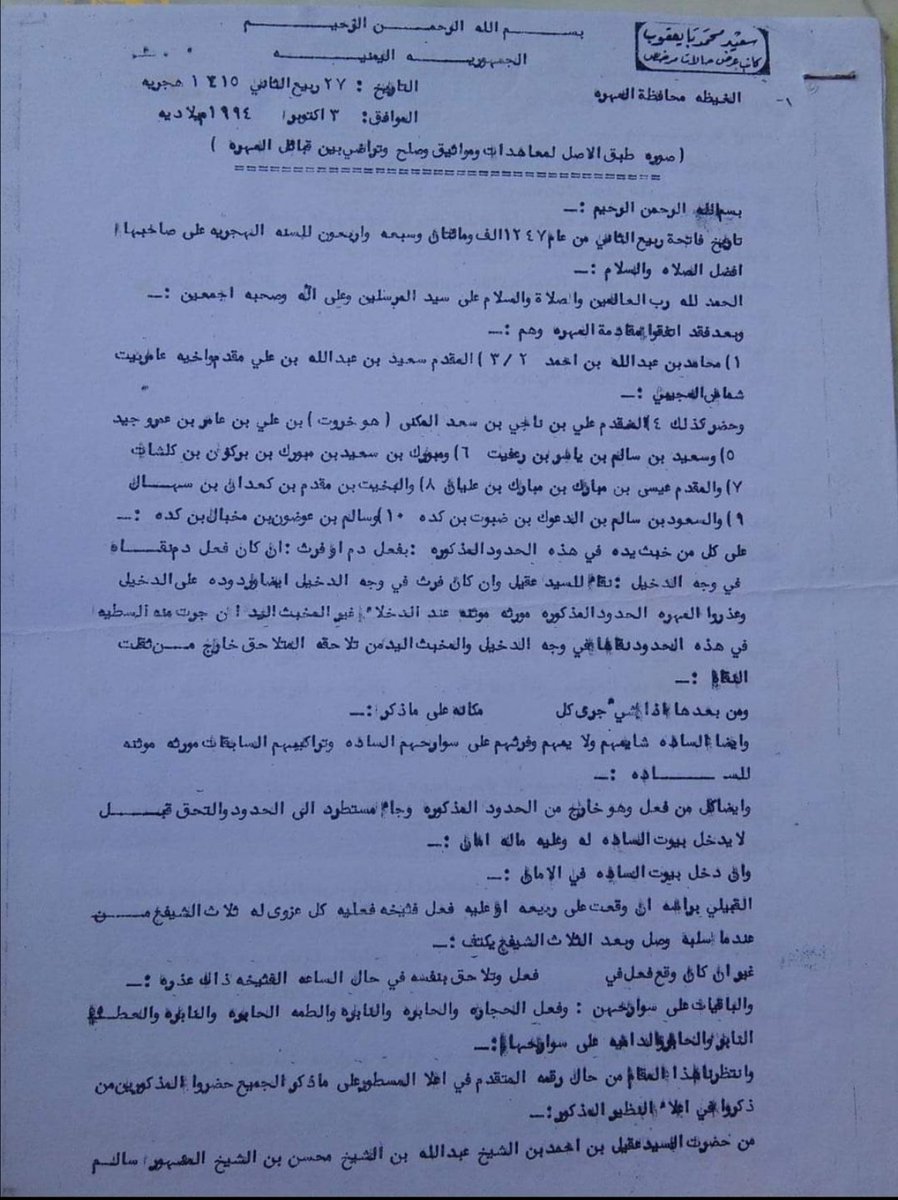 بسم الله الرحمن الرحيم
سعيد محمد بايعقوب
كاتب عرض حالات مرخص
الجمهوريه اليمنيه
التاريخ : ٢٧ ربيع الثاني ١٤١٥ هجريه
الغيظه محافظة المهره
الموافق: ٣ اكتوبر ١٩٩٤ ميلاديه
١-
( صوره طبق الاصل لمعاهدات ومواثيق وصلح وتراضي بين قبائل المهره )
بسم الله الرحمن الرحيم :ــ
تاريخ فاتحة ربيع الثاني من عام ١٢٤٧ الف ومائتان وسبعه واربعون للسنه الهجريه على صاحبها
افضل الصلاه والسلام :ــ
الحمد لله رب العالمين والصلاة والسلام على سيد المرسلين وعلى اله وصحبه اجمعين :ــ
وبعد فقد اتفقوا مقادمة المهره وهم :ــ
١) محامد بن عبدالله بن احمد ٣/٢) المقدم سعيد بن عبدالله بن علي مقدم واخيه عامر بيت
شماش العجيبي :ــ
وحضر كذلك ٤) المقدم علي بن ناجي بن سعد المكنى ( هو خروت ) بن علي بن عامر بن عمرو جيد
٥) وسعيد بن سالم بن ياسر بن رعفيت ٦) ومبورك بن سعيد بن مبورك بن بركون بن كلشات
٧) والمقدم عيسى بن مبارك بن مبارك بن عليان ٨) والبخيت بن مقدم بن كعدان بن سهال
٩) والسعود بن سالم بن الدعوك بن ضبوت بن كده ١٠) وسالم بن عوضون بن مخبال بن كده :ــ
على كل من خبث يده في هذه الحدود المذكوره : بفعل دم او فرث : ان كان فعل دم نقاه
في وجه الدخيل : نقام للسيد عقيل وان كان فرث في وجه الدخيل ايضا وردوده على الدخيل
وعذروا المهره الحدود المذكوره مورثه موثثه عند الدخلاء غير المخبث اليد ان جرت منه السطيه
في هذه الحدود نقاها في وجه الدخيل والمخبث اليد من تلاحقه المتلاحق خارج من نقلت
النقام :ــ
ومن بعدها اذا شيء جرى كل مكانه على ما ذكر :ــ
وايضا الساده شايعهم ولا يعهم وفرثهم على سوارحهم الساده وتراكيبهم السابقات مورثه موثثه
للساده :ــ
وايضا كل من فعل وهو خارج من الحدود المذكوره وجاء مستطرد الى الحدود والتحق قبل
لا يدخل بيوت الساده له وعليه ماله امان :ــ
وان دخل بيوت الساده في الامان :ــ
القبيلي براسه ان وقعت على ربيعه او عليه فعل فثيخه فعليه كل عزوى له ثلاث الشيفخ من
عندما سلبة وصل وبعد الثلاث الشيفخ يكتف :ــ
غير ان كان وقع فعل في فعل وتلاحق بنفسه في حال الساعه الفثيخه ذاك عذره :ــ
والباقيات على سوارخهن : وفعل الحجاره والحابره والنابزه والطمه الحابره والنابزه والحطـ
النابز والحابر والداهيه على سوارخها :ــ
وانتظر هذا المقام من حال رقمه المتقدم في اعلا المسطور على ما ذكر الجميع حضروا المذكورين من
ذكروا في اعلاء النظير المذكور :ــ
من حضرت السيد عقيل بن احمد بن الشيخ عبدالله بن الشيخ محسن بن الشيخ المشهور سالم